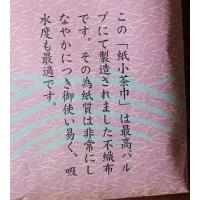 この「紙小茶巾」は最高パル
プにて製造されました不織布
です。その為紙質は非常にし
なやかにつき御使い易く、吸
水度も最適です。